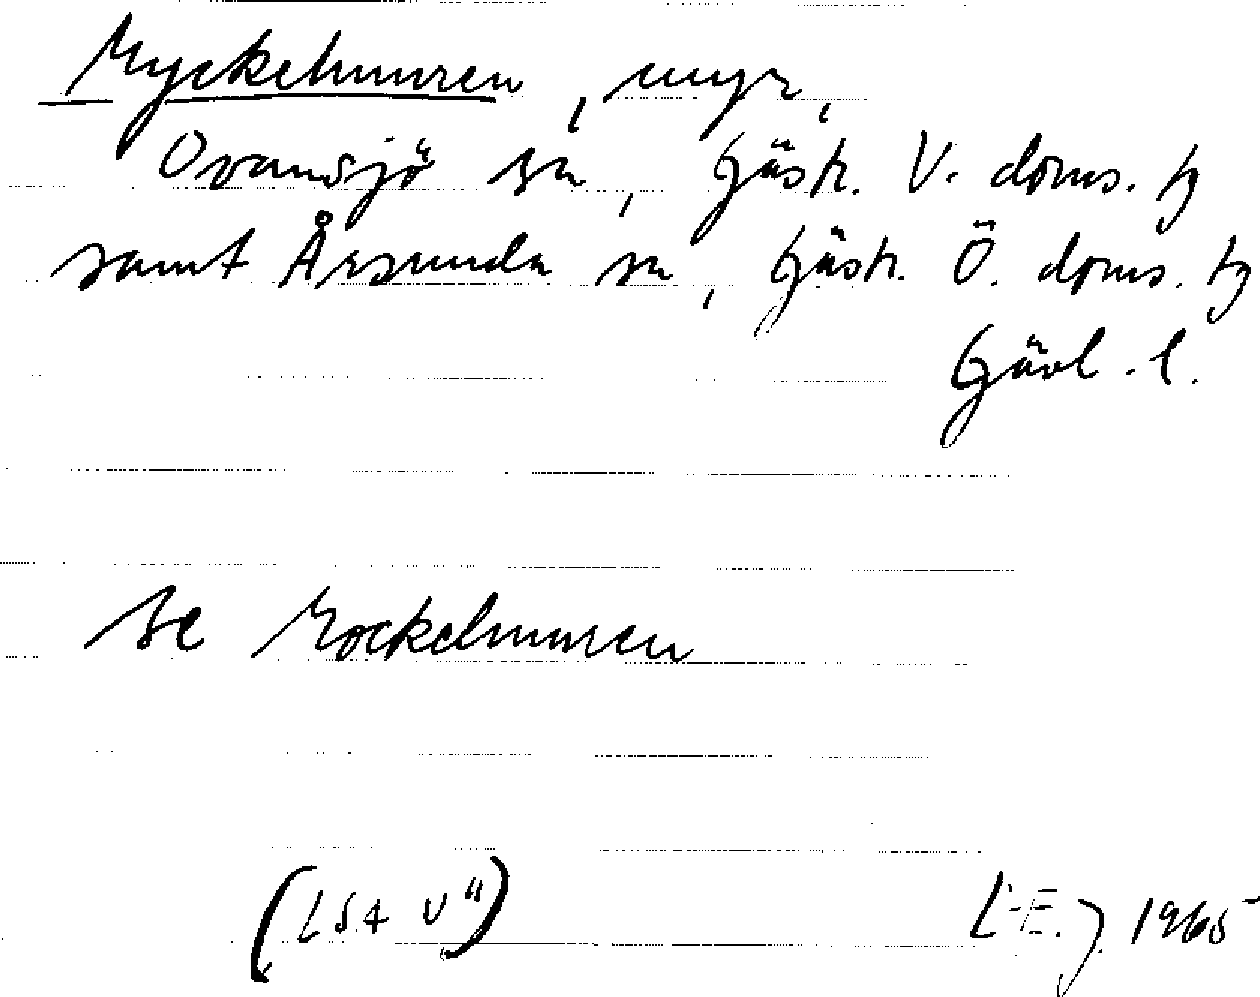 Myckelmuren, myr,
Ovansjö sn, Gästr. V. doms. tg
samt Årsunda sn, Gästr. Ö. doms. tg
Gävl. l.
Se Mockelmuren
(LSA U")
L-E. J. 1965